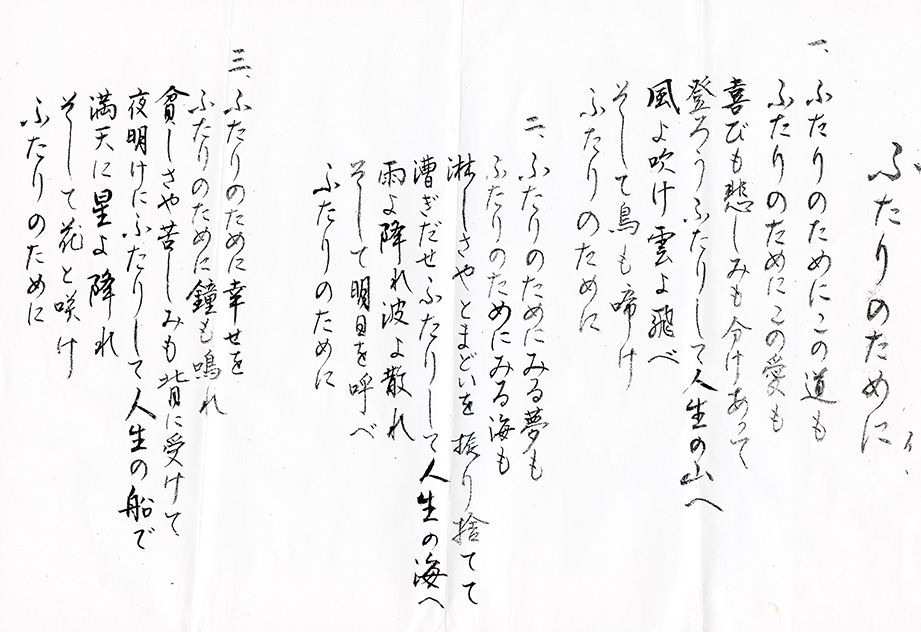 ふたりのために
一、ふたりのためにこの道も
ふたりのためにこの愛も
喜びも悲しみも分けあって
登ろうふたりして人生の山へ
風よ吹け雲よ飛べ
そして鳥も啼け
ふたりのために
二、ふたりのためにみる夢も
ふたりのためにみる海も
淋しさやとまどいを振り捨てて
漕ぎだせふたりして人生の海へ
雨よ降れ波よ散れ
そして明日を呼べ
ふたりのために
三、ふたりのために幸せを
ふたりのために鐘も鳴れ
貧しさや苦しみも背に受けて
夜明けにふたりして人生の船で
満天に星よ降れ
そして花と咲け
ふたりのために